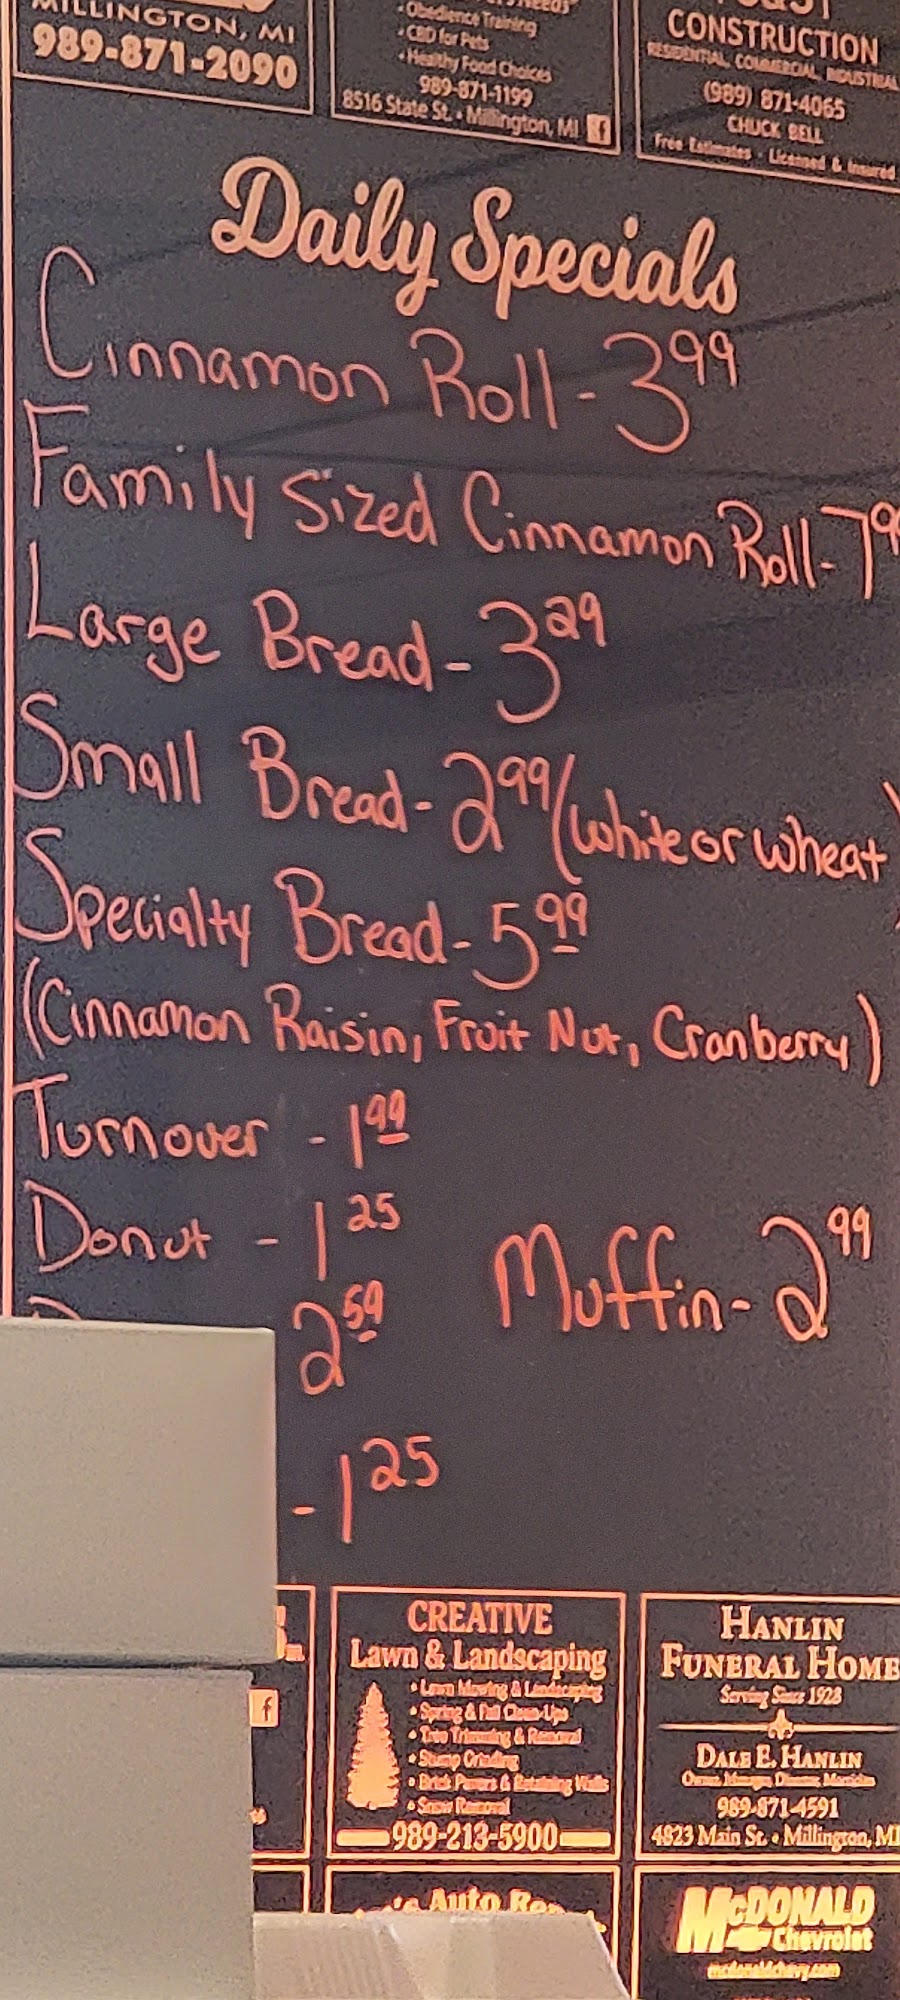 MILLINGTON, MI
989-871-2090
• Obedience Training
• CBD for Pets
• Healthy Food Choices
989-871-1199
8516 State St. • Millington, MI
CONSTRUCTION
RESIDENTIAL, COMMERCIAL, INDUSTRIAL
(989) 871-4065
CHUCK BELL
Free Estimates - Licensed & Insured
Daily Specials
Cinnamon Roll - 3 99
Family Sized Cinnamon Roll - 7 99
Large Bread - 3 29
Small Bread - 2 99 (white or wheat)
Specialty Bread - 5 99
(Cinnamon Raisin, Fruit Nut, Cranberry)
Turnover - 1 99
Donut - 1 25
Muffin - 2 99
2 59
- 1 25
CREATIVE
Lawn & Landscaping
• Lawn Mowing & Landscaping
• Spring & Fall Clean-Ups
• Tree Trimming & Removal
• Stump Grinding
• Brick Pavers & Retaining Walls
• Snow Removal
989-213-5900
HANLIN
FUNERAL HOME
Serving Since 1928
DALE E. HANLIN
989-871-4591
4823 Main St. • Millington, MI
Auto
McDONALD
Chevrolet
mcdonaldchevy.com